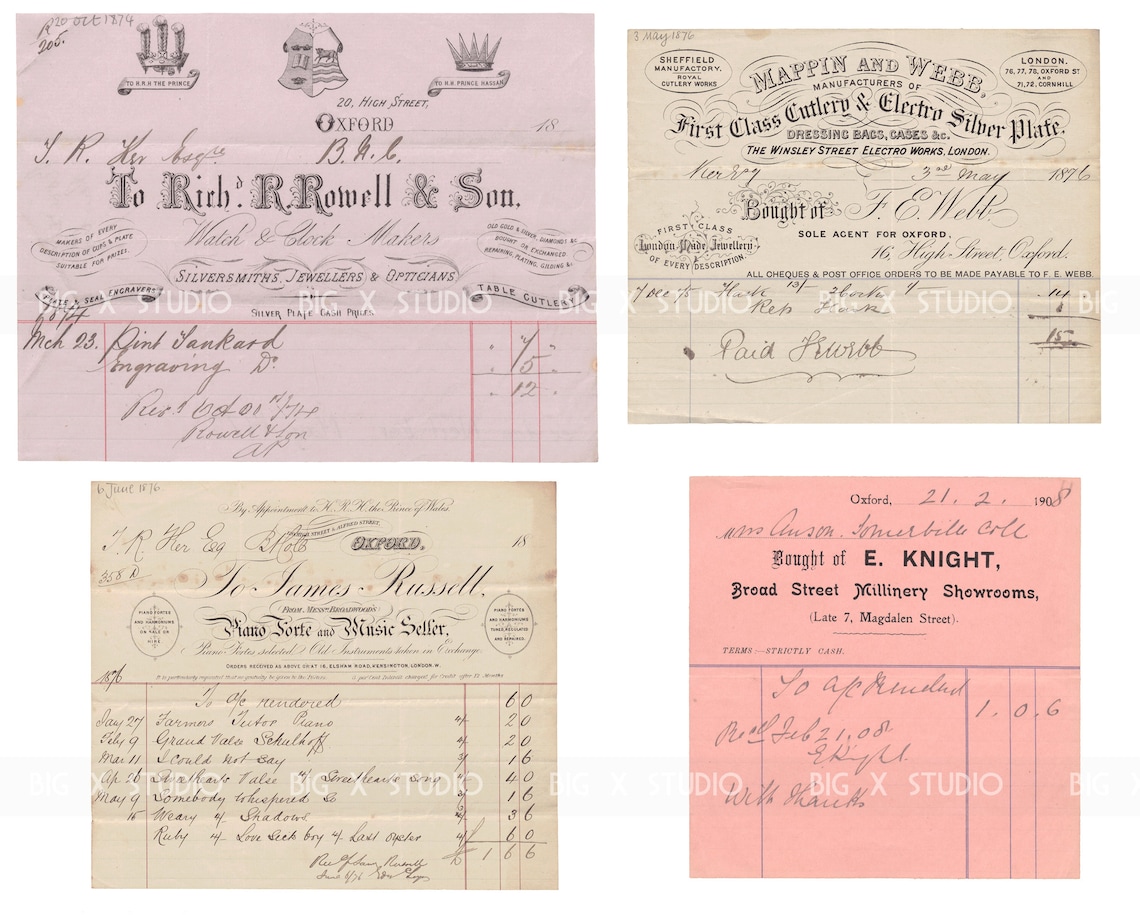 20 Oct 1874
205.
TO H.R.H THE PRINCE
TO H.H. PRINCE HASSAN
20, HIGH STREET,
OXFORD 18
T. R. Her Esqre B.N.C.
To Richd. R. Rowell & Son,
Watch & Clock Makers
MAKERS OF EVERY DESCRIPTION OF CUPS & PLATE SUITABLE FOR PRIZES.
OLD GOLD & SILVER, DIAMONDS &c. BOUGHT OR EXCHANGED. REPAIRING, PLATING, GILDING &c.
SILVERSMITHS, JEWELLERS & OPTICIANS
PLATE & SEAL ENGRAVERS
TABLE CUTLERY
SILVER PLATE CASH PRICES.
Mch 23. Pint Tankard " 7 "
Engraving Do. 5
" 12 "
Rowell & Son
3 May 1876
SHEFFIELD MANUFACTORY. ROYAL CUTLERY WORKS
MAPPIN AND WEBB,
MANUFACTURERS OF
LONDON. 76, 77, 78, OXFORD ST AND 71, 72, CORNHILL
First Class Cutlery & Electro Silver Plate.
DRESSING BAGS, CASES &c.
THE WINSLEY STREET ELECTRO WORKS, LONDON.
Her Esq 3rd May 1876
Bought of F. E. Webb
FIRST CLASS
London Made Jewellery
OF EVERY DESCRIPTION.
SOLE AGENT FOR OXFORD.
16, High Street, Oxford.
ALL CHEQUES & POST OFFICE ORDERS TO BE MADE PAYABLE TO F. E. WEBB.
14
Rep 1
15
Paid F E Webb
BIG X STUDIO BIG X STUDIO BIG X STUDIO BIG X STUDIO
6 June 1876
By Appointment to H. R. H. the Prince of Wales.
T. R. Her Esq OXFORD. 18
358
To James Russell,
FROM MESSRS BROADWOOD'S
Piano Forte and Music Seller,
PIANO FORTES AND HARMONIUMS ON SALE OR HIRE
PIANO FORTES AND HARMONIUMS TUNED, REGULATED AND REPAIRED.
Piano Fortes selected Old Instruments taken in Exchange.
ORDERS RECEIVED AS ABOVE OR AT 16, ELSHAM ROAD, KENSINGTON, LONDON. W.
1876
To a/c rendered 6 0
Jany 27 Farmers Tutor Piano 4/ 2 0
Feby 9 Grand Valse Schulhoff 4/ 2 0
Mar 11 I could not say 3/ 1 6
Ap. 26 Sweethearts Valse 4/ Sweethearts Song 4/ 4 0
May 9 Somebody Whispered So 3/ 1 6
15 Weary 4/ Shadows 3 6
Ruby 4/ Love Sick Boy 4/ Last Oyster 4/ 6 0
£ 1 6 6
James Russell
Oxford, 21. 2. 1908
Mrs Anson. Somerville Coll
Bought of E. KNIGHT,
Broad Street Millinery Showrooms,
(Late 7, Magdalen Street).
TERMS:—STRICTLY CASH.
To a/c Rendered 1. 0. 6
Recd Feb 21. 08
E Knight.
With thanks
BIG X STUDIO BIG X STUDIO BIG X STUDIO BIG X STUDIO